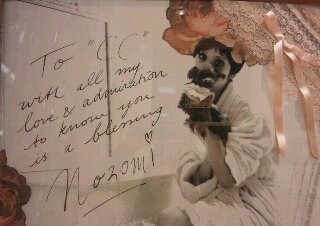 To "C.C"
with all my
love & admiration
to know you
is a blessing
Nozomi